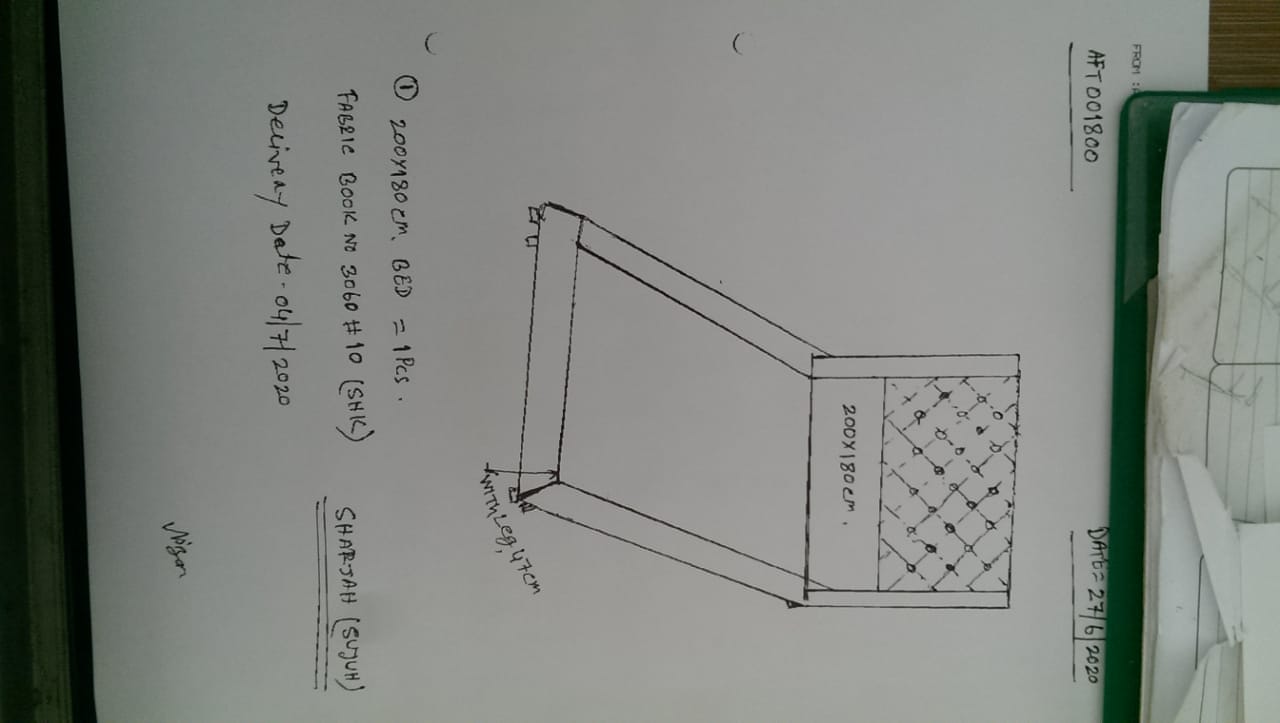 FROM :
AFT001800
DATE= 27/6/2020
200X180cm.
WITH Leg, 47cm
① 200X180cm. BED = 1Pcs.
FABRIC BOOK NO 3060 #10 (SHK)
SHARJAH (SUJUH)
Delivery Date - 04/7/2020
Nizam